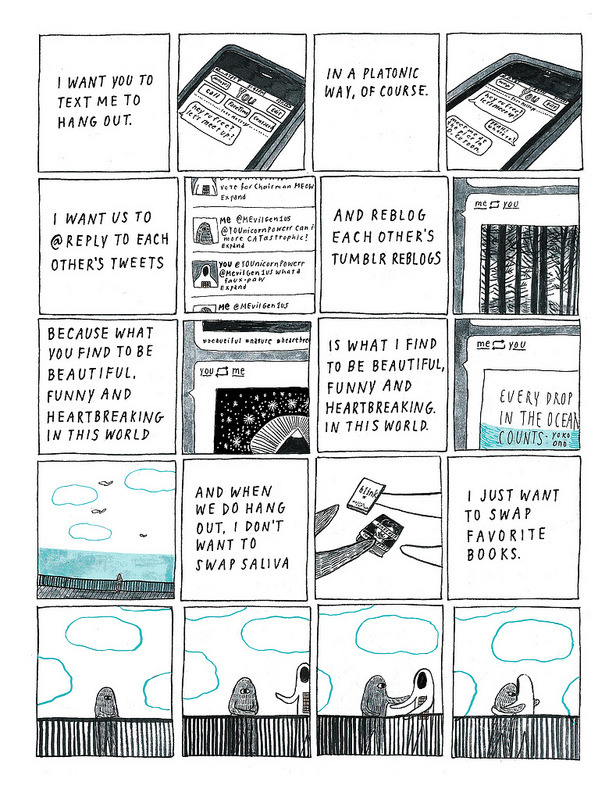 I WANT YOU TO
TEXT ME TO
HANG OUT.
YOU
hey u free?
let's meet up!
IN A PLATONIC
WAY, OF COURSE.
YOU
hey u free?
let's meet up!
I WANT US TO
@ REPLY TO EACH
OTHER'S TWEETS
vote for Chairman MEOW
Expand
Me @MEvilGen1us
@YOUnicornPowerr Can i
more CATastrophic?
Expand
YOU @YOUnicornPowerr
@MEvilGen1us what a
faux-paw
Expand
Me @MEvilGen1us
AND REBLOG
EACH OTHER'S
TUMBLR REBLOGS
me you
BECAUSE WHAT
YOU FIND TO BE
BEAUTIFUL,
FUNNY AND
HEARTBREAKING
IN THIS WORLD
#beautiful #nature #heartbre
you me
IS WHAT I FIND
TO BE BEAUTIFUL,
FUNNY AND
HEARTBREAKING.
IN THIS WORLD.
me you
EVERY DROP
IN THE OCEAN
COUNTS - YOKO
ONO
AND WHEN
WE DO HANG
OUT, I DON'T
WANT TO
SWAP SALIVA
blink
I JUST WANT
TO SWAP
FAVORITE
BOOKS.